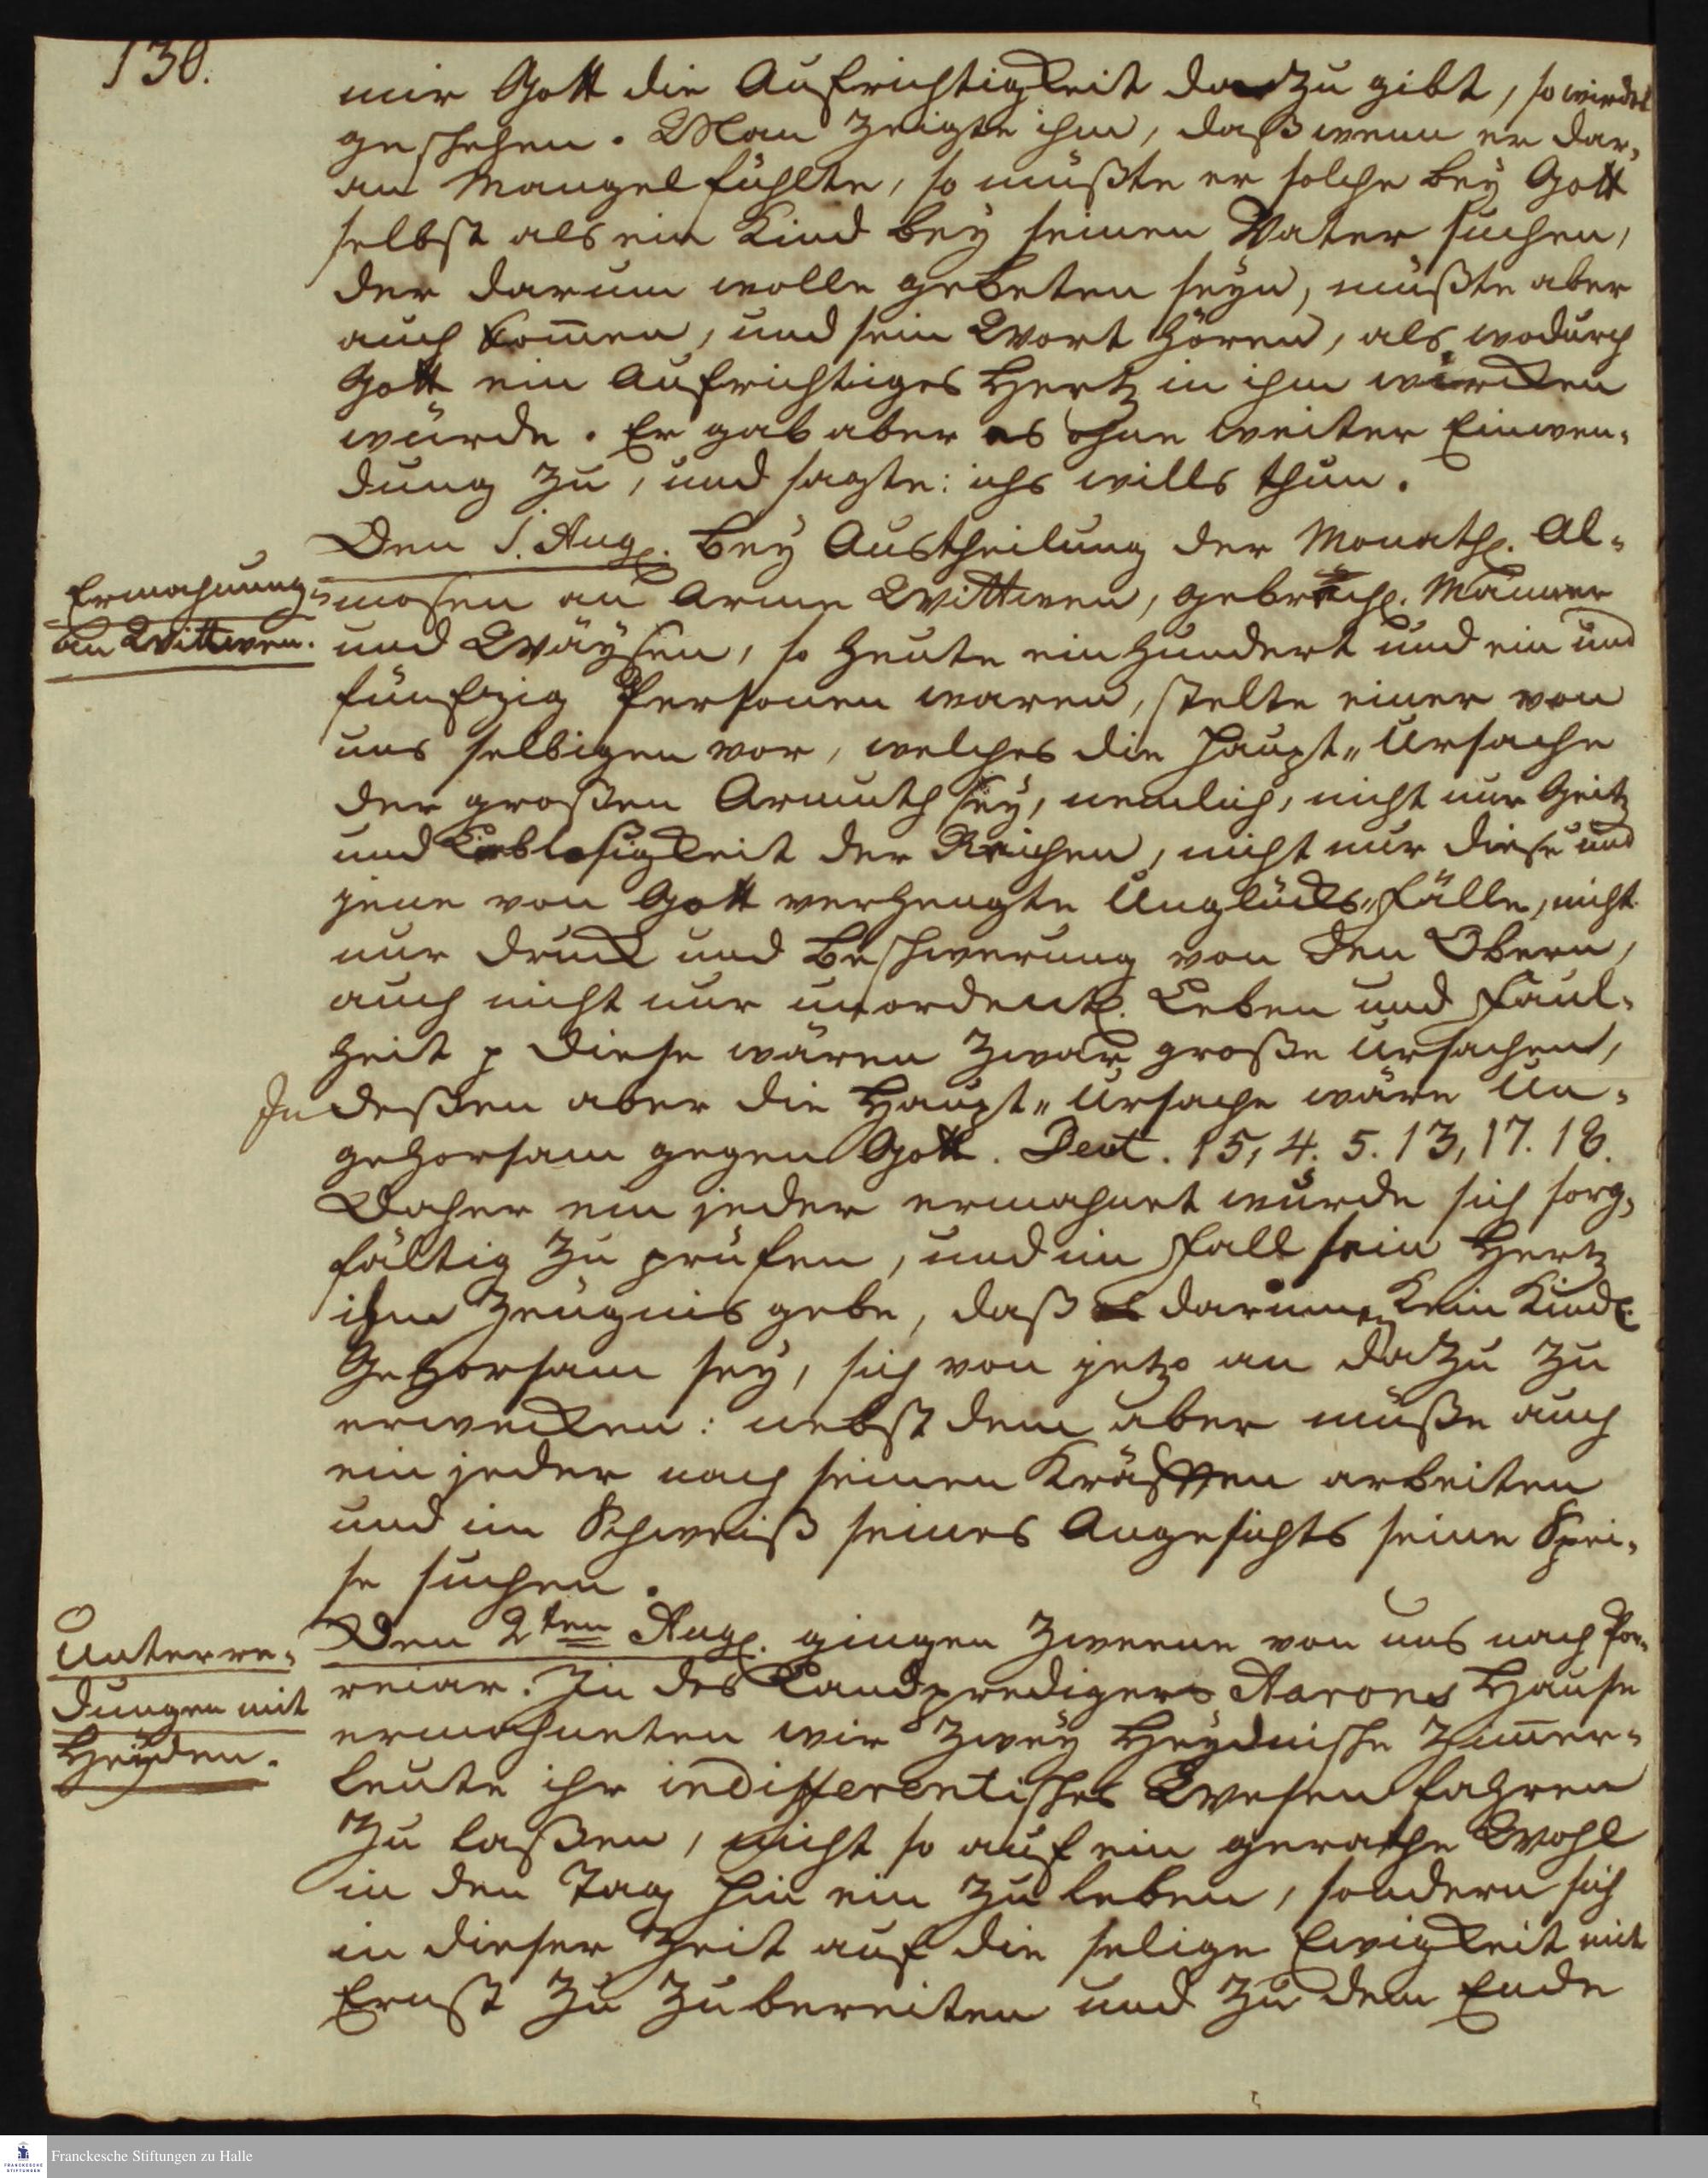 130.
mir Gott die Aufrichtigkeit dazu gibt, so wirdts
geschehen. Man zeigte ihm, daß wenn er dar-
an Mangel fühlte, so müßte er solche bey Gott
selbst als ein Kind bey seinen Vater suchen,
der darum wolle gebeten seyn, müßte aber
auch kom̅en, und sein Wort hören, als wodurch
Gott ein Aufrichtiges Hertz in ihm wircken
würde. Er gab aber es ohne weiter Einwen-
dung zu, und sagte: ichs wills thun.
Den 1. Aug. bey Austheilung der Monathl. Al-
Ermahnung
an Wittwen.
mosen an Arme Wittwen, gebrechl. Männer
und Wäysen, so heute ein hundert und ein und
fünfzig Personen waren, stelte einer von
uns selbigen vor, welches die Haupt-Ursache
der großen Armuth sey, nemlich, nicht nur Geitz
und Lieblosigkeit der Reichen, nicht nur diese und
jene von Gott verhengte Unglücks-Fälle, nicht
nur Druck und Beschwerung von den Obern,
auch nicht nur unordentl. Leben und Faul-
heit p diese wären zwar große Ursachen,
Indeßen aber die Haupt-Ursache wäre Un-
gehorsam gegen Gott. Deut. 15, 4. 5. 13, 17. 18.
Daher ein jeder ermahnet wurde sich sorg-
fältig zu prüfen, und im Fall sein Hertz
ihm Zeugnis gebe, daß darinnen kein Kindl.
Gehorsam sey, sich von jetzo an dazu zu
erwecken: nebst dem aber müße auch
ein jeder nach seinen Kräfften arbeiten
und im Schweiß seines Angesichts seine Spei-
se suchen.
Unterre-
dungen mit
Heyden.
Den 2ten Aug. gingen Zweene von uns nach Por-
reiar. In des Landpredigers Aarons Hause
ermahneten wir zwey Heydnische Zim̅er-
leute ihr indifferentisches Wesen fahren
zu laßen, nicht so auf ein gerathe Wohl
in den Tag hin ein zu leben, sondern sich
in dieser Zeit auf die selige Ewigkeit mit
Ernst zu zubereiten und zu dem Ende
Franckesche Stiftungen zu Halle
FRANCKESCHE
STIFTUNGEN